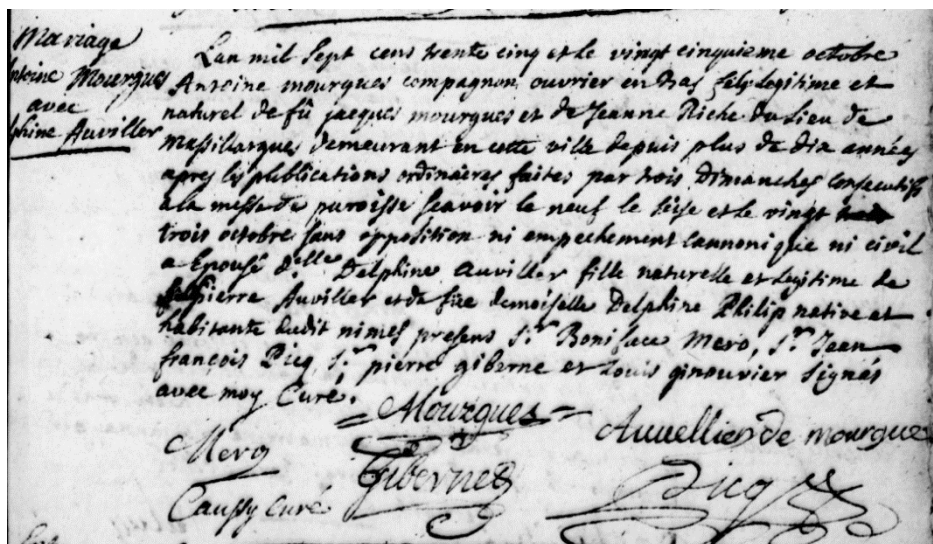 Mariage
Antoine Mourgues
avec
phine Auviller
Lan mil sept cens trente cinq et le vingt cinquieme octobre
Antoine mourgues compagnon ouvrier en bas fils legitime et
naturel de fû jacques mourgues et de Jeanne Riche du Lieu de
Massillargues demeurant en cette ville depuis plus de dix années
apres les publications ordinaires faites par trois Dimanches Consecutifs
a la messe de paroisse scavoir le neuf le seise et le vingt
trois octobre sans opposition ni empechement Cannonique ni civil
a Epousé d.elle Delphine Auviller fille naturelle et legitime de
pierre Auviller et de füe demoiselle Delphine Philip native et
habitante dudit nimes presens s.r Boniface Mero, s.r Jean
françois Picq, s.r pierre giberne et Louis ginouvier signés
avec moy Curé.
Mourgues
Auvellier de mourgue
Mero
Giberne
Picq
Caussy curé